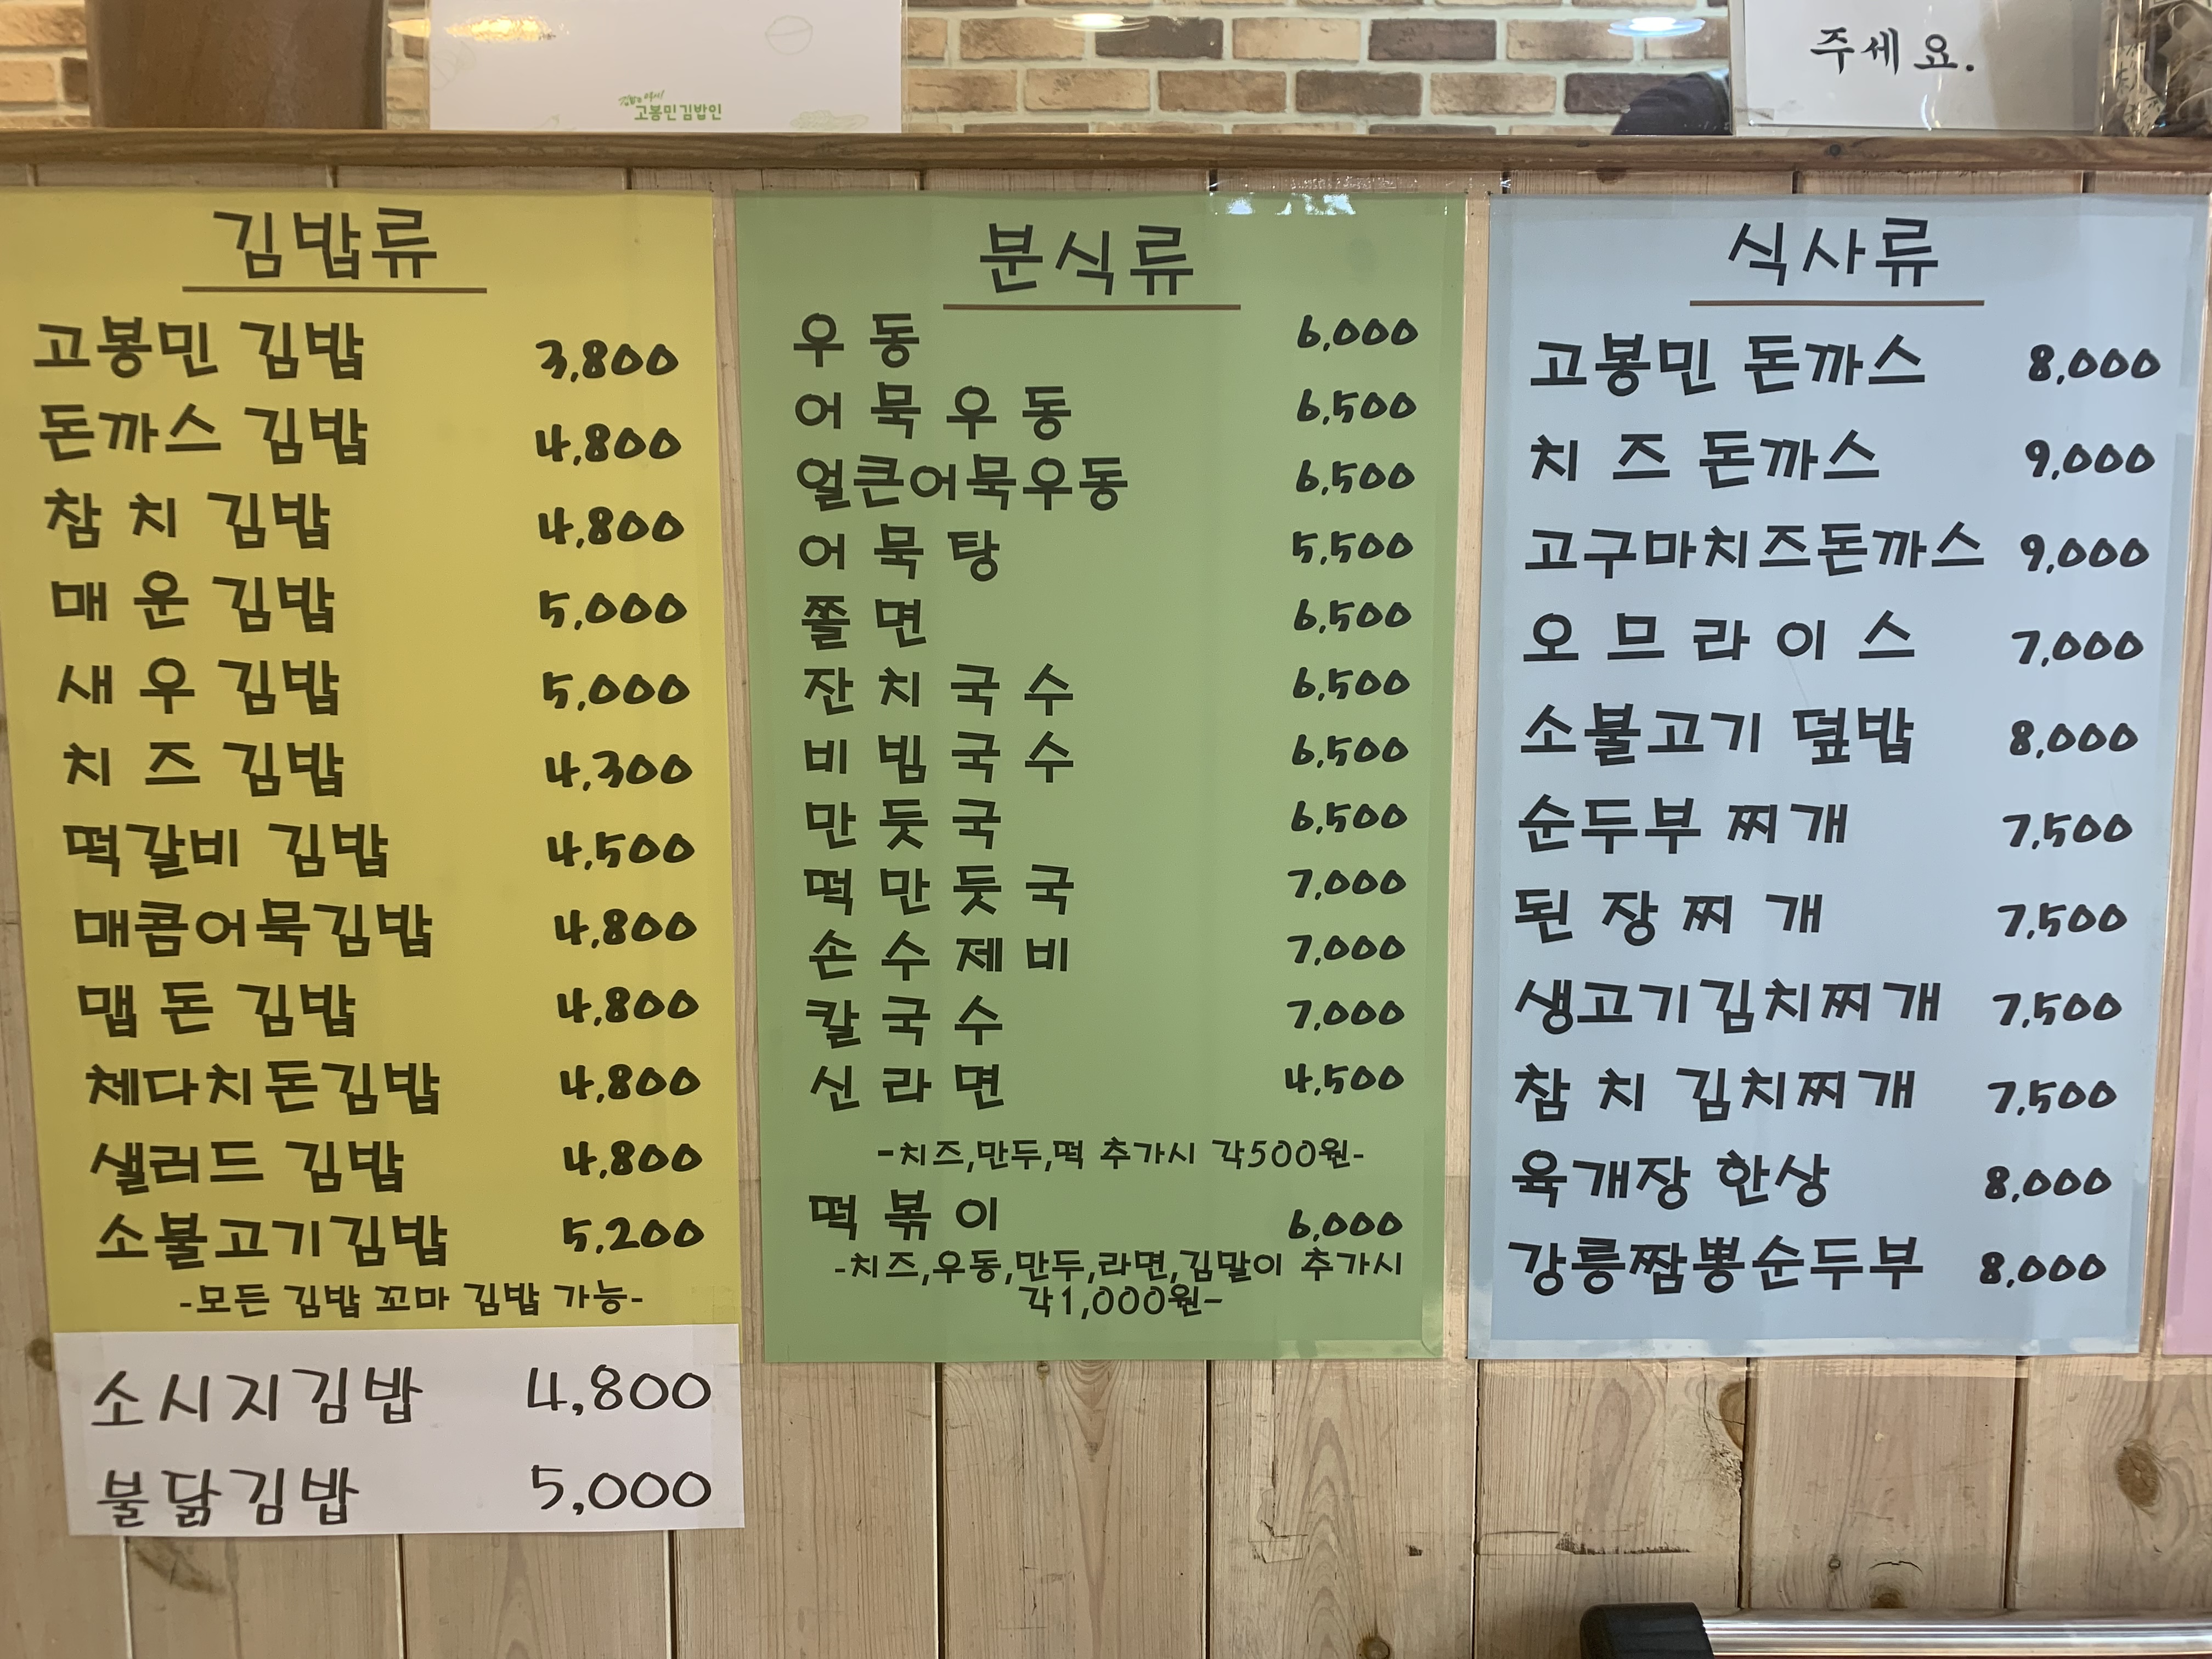 고봉민김밥인
주세요.
김밥류
고봉민 김밥 3,800
돈까스 김밥 4,800
참치 김밥 4,800
매운 김밥 5,000
새우 김밥 5,000
치즈 김밥 4,300
떡갈비 김밥 4,500
매콤어묵김밥 4,800
맵돈 김밥 4,800
체다치돈김밥 4,800
샐러드 김밥 4,800
소불고기김밥 5,200
-모든 김밥 꼬마 김밥 가능-
소시지김밥 4,800
불닭김밥 5,000
분식류
우동 6,000
어묵우동 6,500
얼큰어묵우동 6,500
어묵탕 5,500
쫄면 6,500
잔치국수 6,500
비빔국수 6,500
만둣국 6,500
떡만둣국 7,000
손수제비 7,000
칼국수 7,000
신라면 4,500
-치즈,만두,떡 추가시 각500원-
떡볶이 6,000
-치즈,우동,만두,라면,김말이 추가시
각1,000원-
식사류
고봉민 돈까스 8,000
치즈돈까스 9,000
고구마치즈돈까스 9,000
오므라이스 7,000
소불고기 덮밥 8,000
순두부찌개 7,500
된장찌개 7,500
생고기김치찌개 7,500
참치 김치찌개 7,500
육개장 한상 8,000
강릉짬뽕순두부 8,000